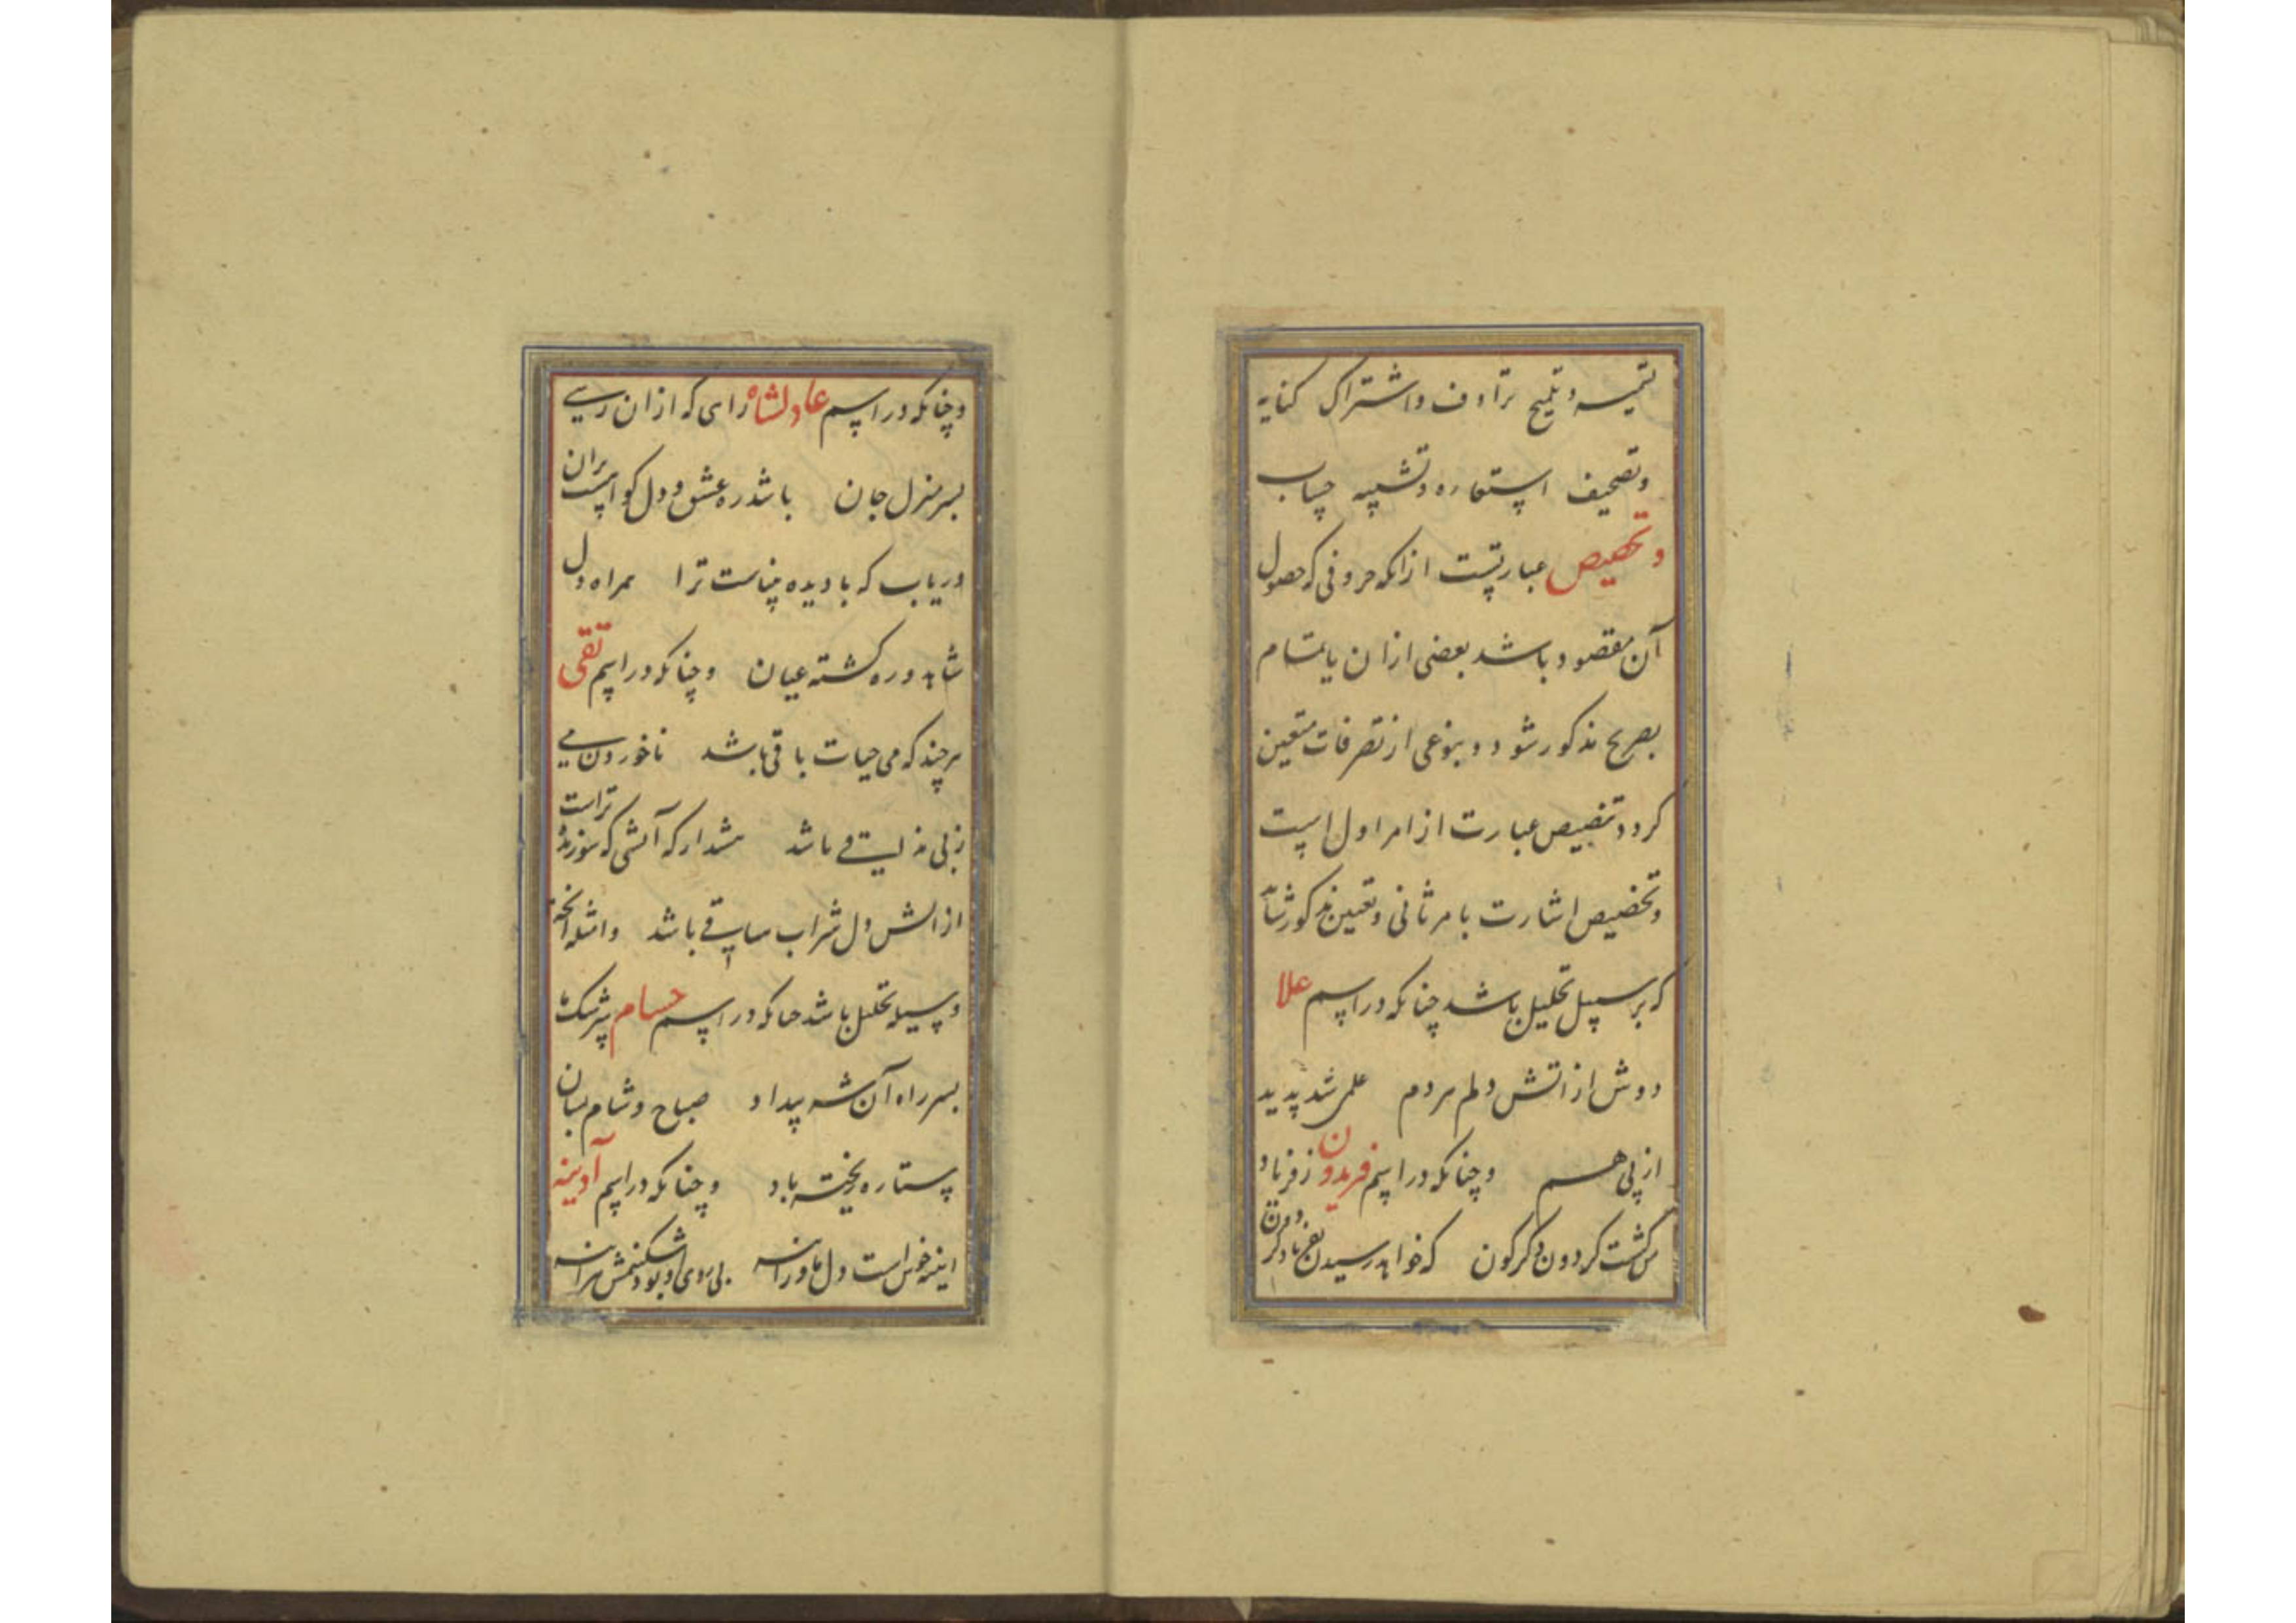 تسمیه و تلمیح ترادف و اشتراک کنایه
و تصحیف استعاره و تشبیه حساب
و تخصیص عبارتست از انکه حروفی که حصول
آن مقصود باشد بعضی ازان یا تمام
بصریح مذکور شود و بنوعی از تصرفات متعین
کردد تنصیص عبارت از امر اول است
و تخصیص اشارت بامر ثانی و تعیین مذکور شاید
که بر سبیل تحلیل باشد چنانکه در اسم علا
دوش از اتش دلم هردم علمی شد پدید
از پی هم و چنانکه در اسم فریدون ز فرهاد
کشت کردون دکرکون که خواهد رسیدن
و چنانکه در اسم عادلشاه رای که ازان رسی
بسر منزل جان باشد ره عشق و دل کواهست بران
دریاب که با دیده بیناست ترا همراه دل
شاهد و ره کشته عیان و چنانکه در اسم تقی
هر چند که می حیات باقی باشد ناخوردن می
هشدار که آتشی که سوزنده تراست
از اتش دل شراب ساقی باشد و امثله انچه
وسیله تحلیل باشد چنانکه در اسم حسام
بسر راه آن شه بیداد صباح و شام بسان
ستاره ریخته باد و چنانکه در اسم آدینه
اینه خوش است دل ما ورانه بی روی او بود